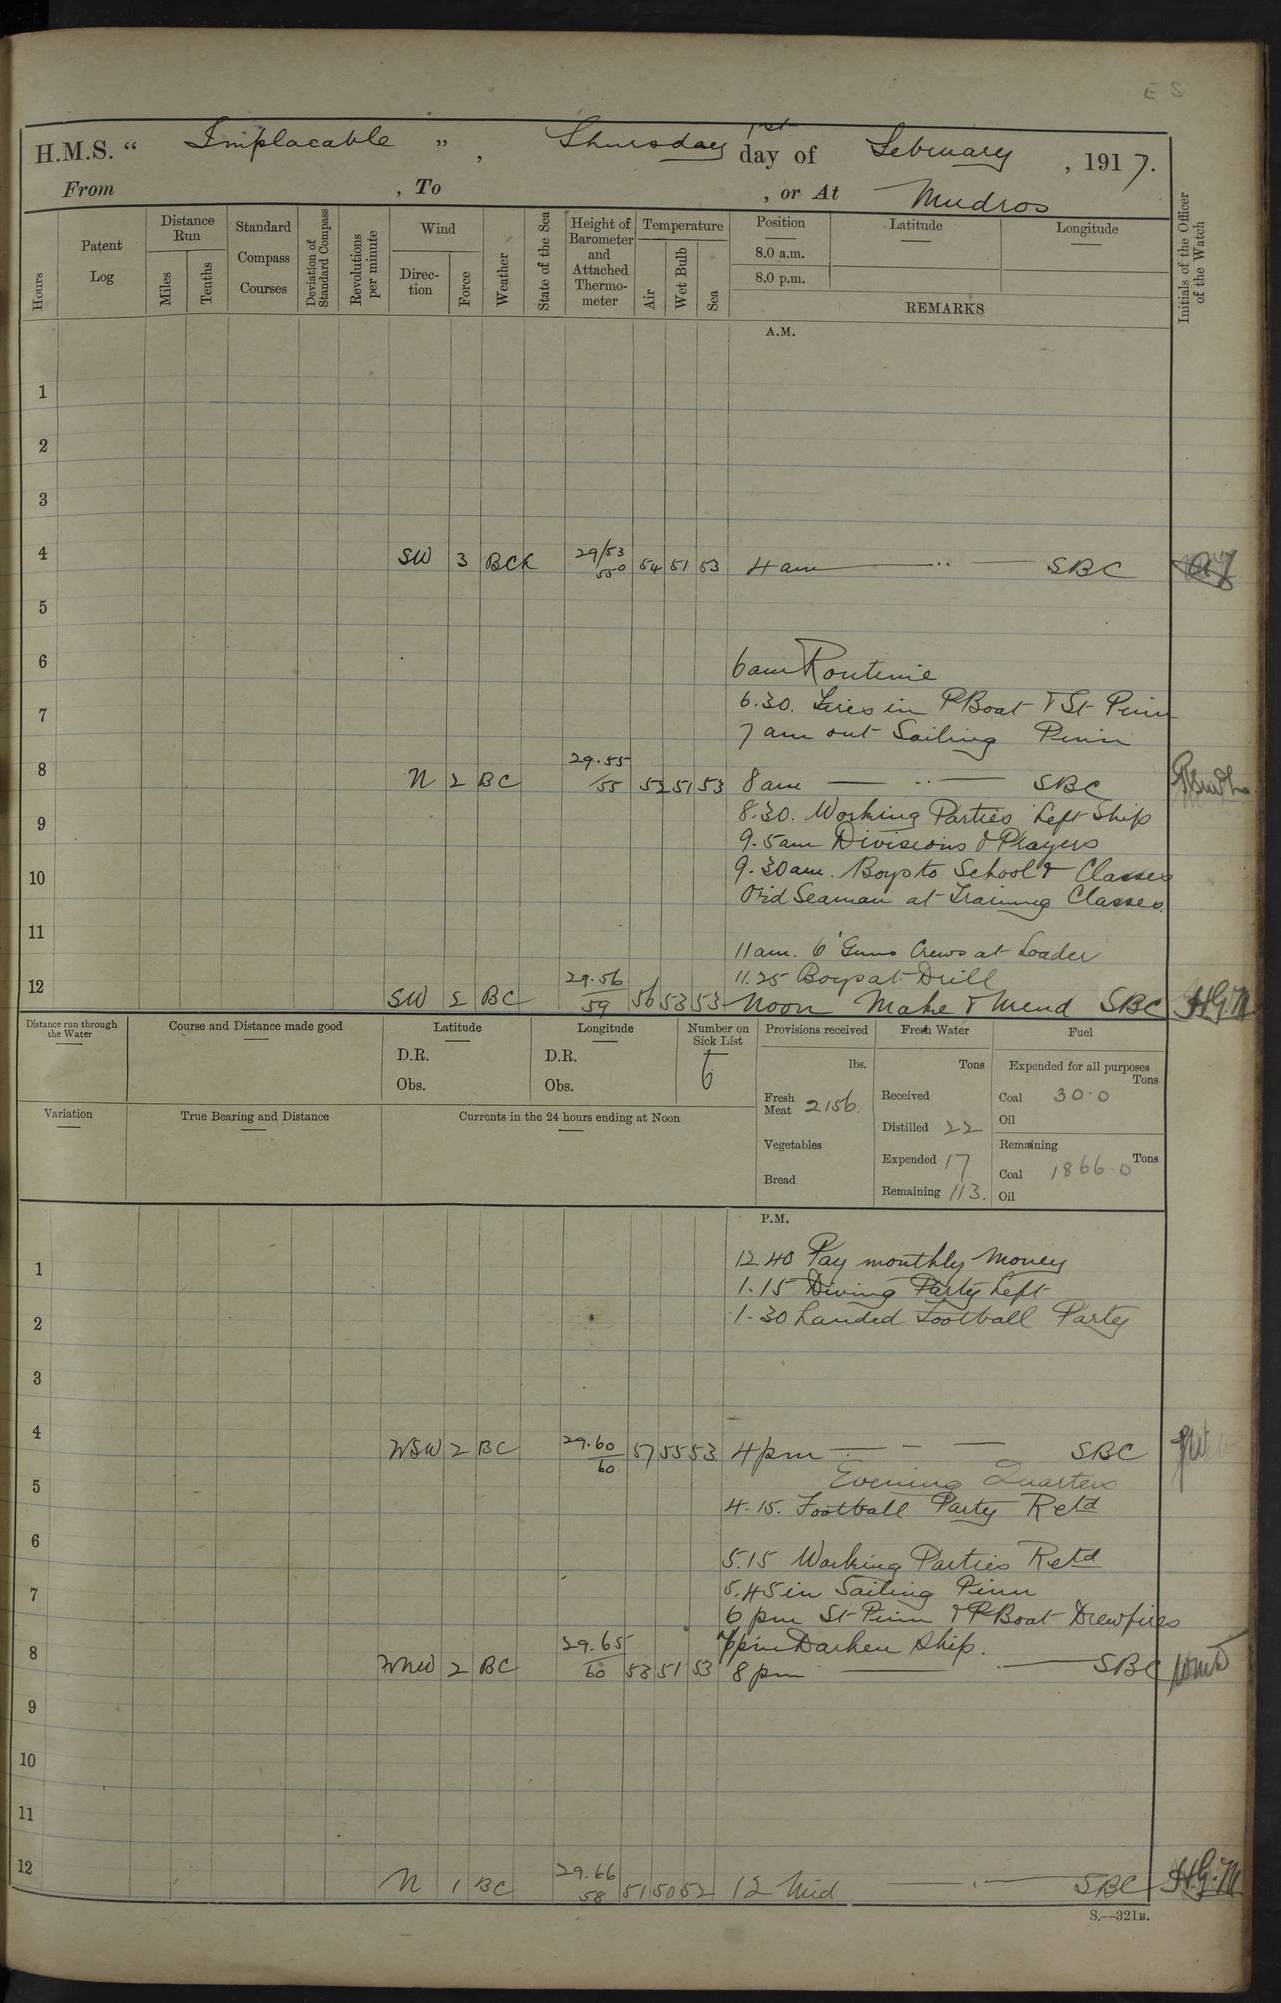 E S
H.M.S. " Implacable ", Thursday 1st day of February, 1917.
From , To , or At Mudros
Hours
Patent Log
Distance Run
Miles
Tenths
Standard Compass Courses
Deviation of Standard Compass
Revolutions per minute
Wind
Direction
Force
Weather
State of the Sea
Height of Barometer and Attached Thermometer
Temperature
Air
Wet Bulb
Sea
Position
8.0 a.m.
8.0 p.m.
Latitude
Longitude
REMARKS
Initials of the Officer of the Watch
A.M.
1
2
3
4 SW 3 29/53 550 54 51 53 4 am SBC
5
6 6 am Routine
6.30. Fires in PBoat & St Pinn
7 7 am out Sailing Pinn
8 N 2 BC 29.55/55 52 51 53 8 am SBC
8.30. Working Parties Left Ship
9 9.5 am Divisions & Prayers
10 9.30 am. Boys to School & Classes
Ord Seaman at Training Classes.
11 11 am. 6" Guns Crews at Loader
11.25 Boys at Drill
12 SW 2 BC 29.56/59 56 53 53 Noon Make & Mend SBC H.G.M
Distance run through the Water
Course and Distance made good
Latitude
D.R.
Obs.
Longitude
D.R.
Obs.
Number on Sick List
6
Provisions received
lbs.
Fresh Meat 2156.
Vegetables
Bread
Fresh Water
Tons
Received
Distilled 22
Expended 17
Remaining 113.
Fuel
Expended for all purposes
Tons
Coal 30.0
Oil
Remaining
Tons
Coal 1866.0
Oil
Variation
True Bearing and Distance
Currents in the 24 hours ending at Noon
P.M.
1 12 40 Pay monthly Money
1.15 Diving Party Left
2 1.30 Landed Football Party
3
4 WSW 2 BC 29.60/60 57 55 53 4 pm SBC
5 Evening Quarters
4.15. Football Party Retd
6 5.15 Working Parties Retd
7 5.45 in Sailing Pinn
6 pm St Pinn & PBoat Drew fires
8 pm Darken Ship.
WNW 2 BC 29.65/60 53 51 53 8 pm SBC
9
10
11
12 N 1 BC 29.66/58 51 50 52 12 Mid SBC H.G.M
S.—321B.